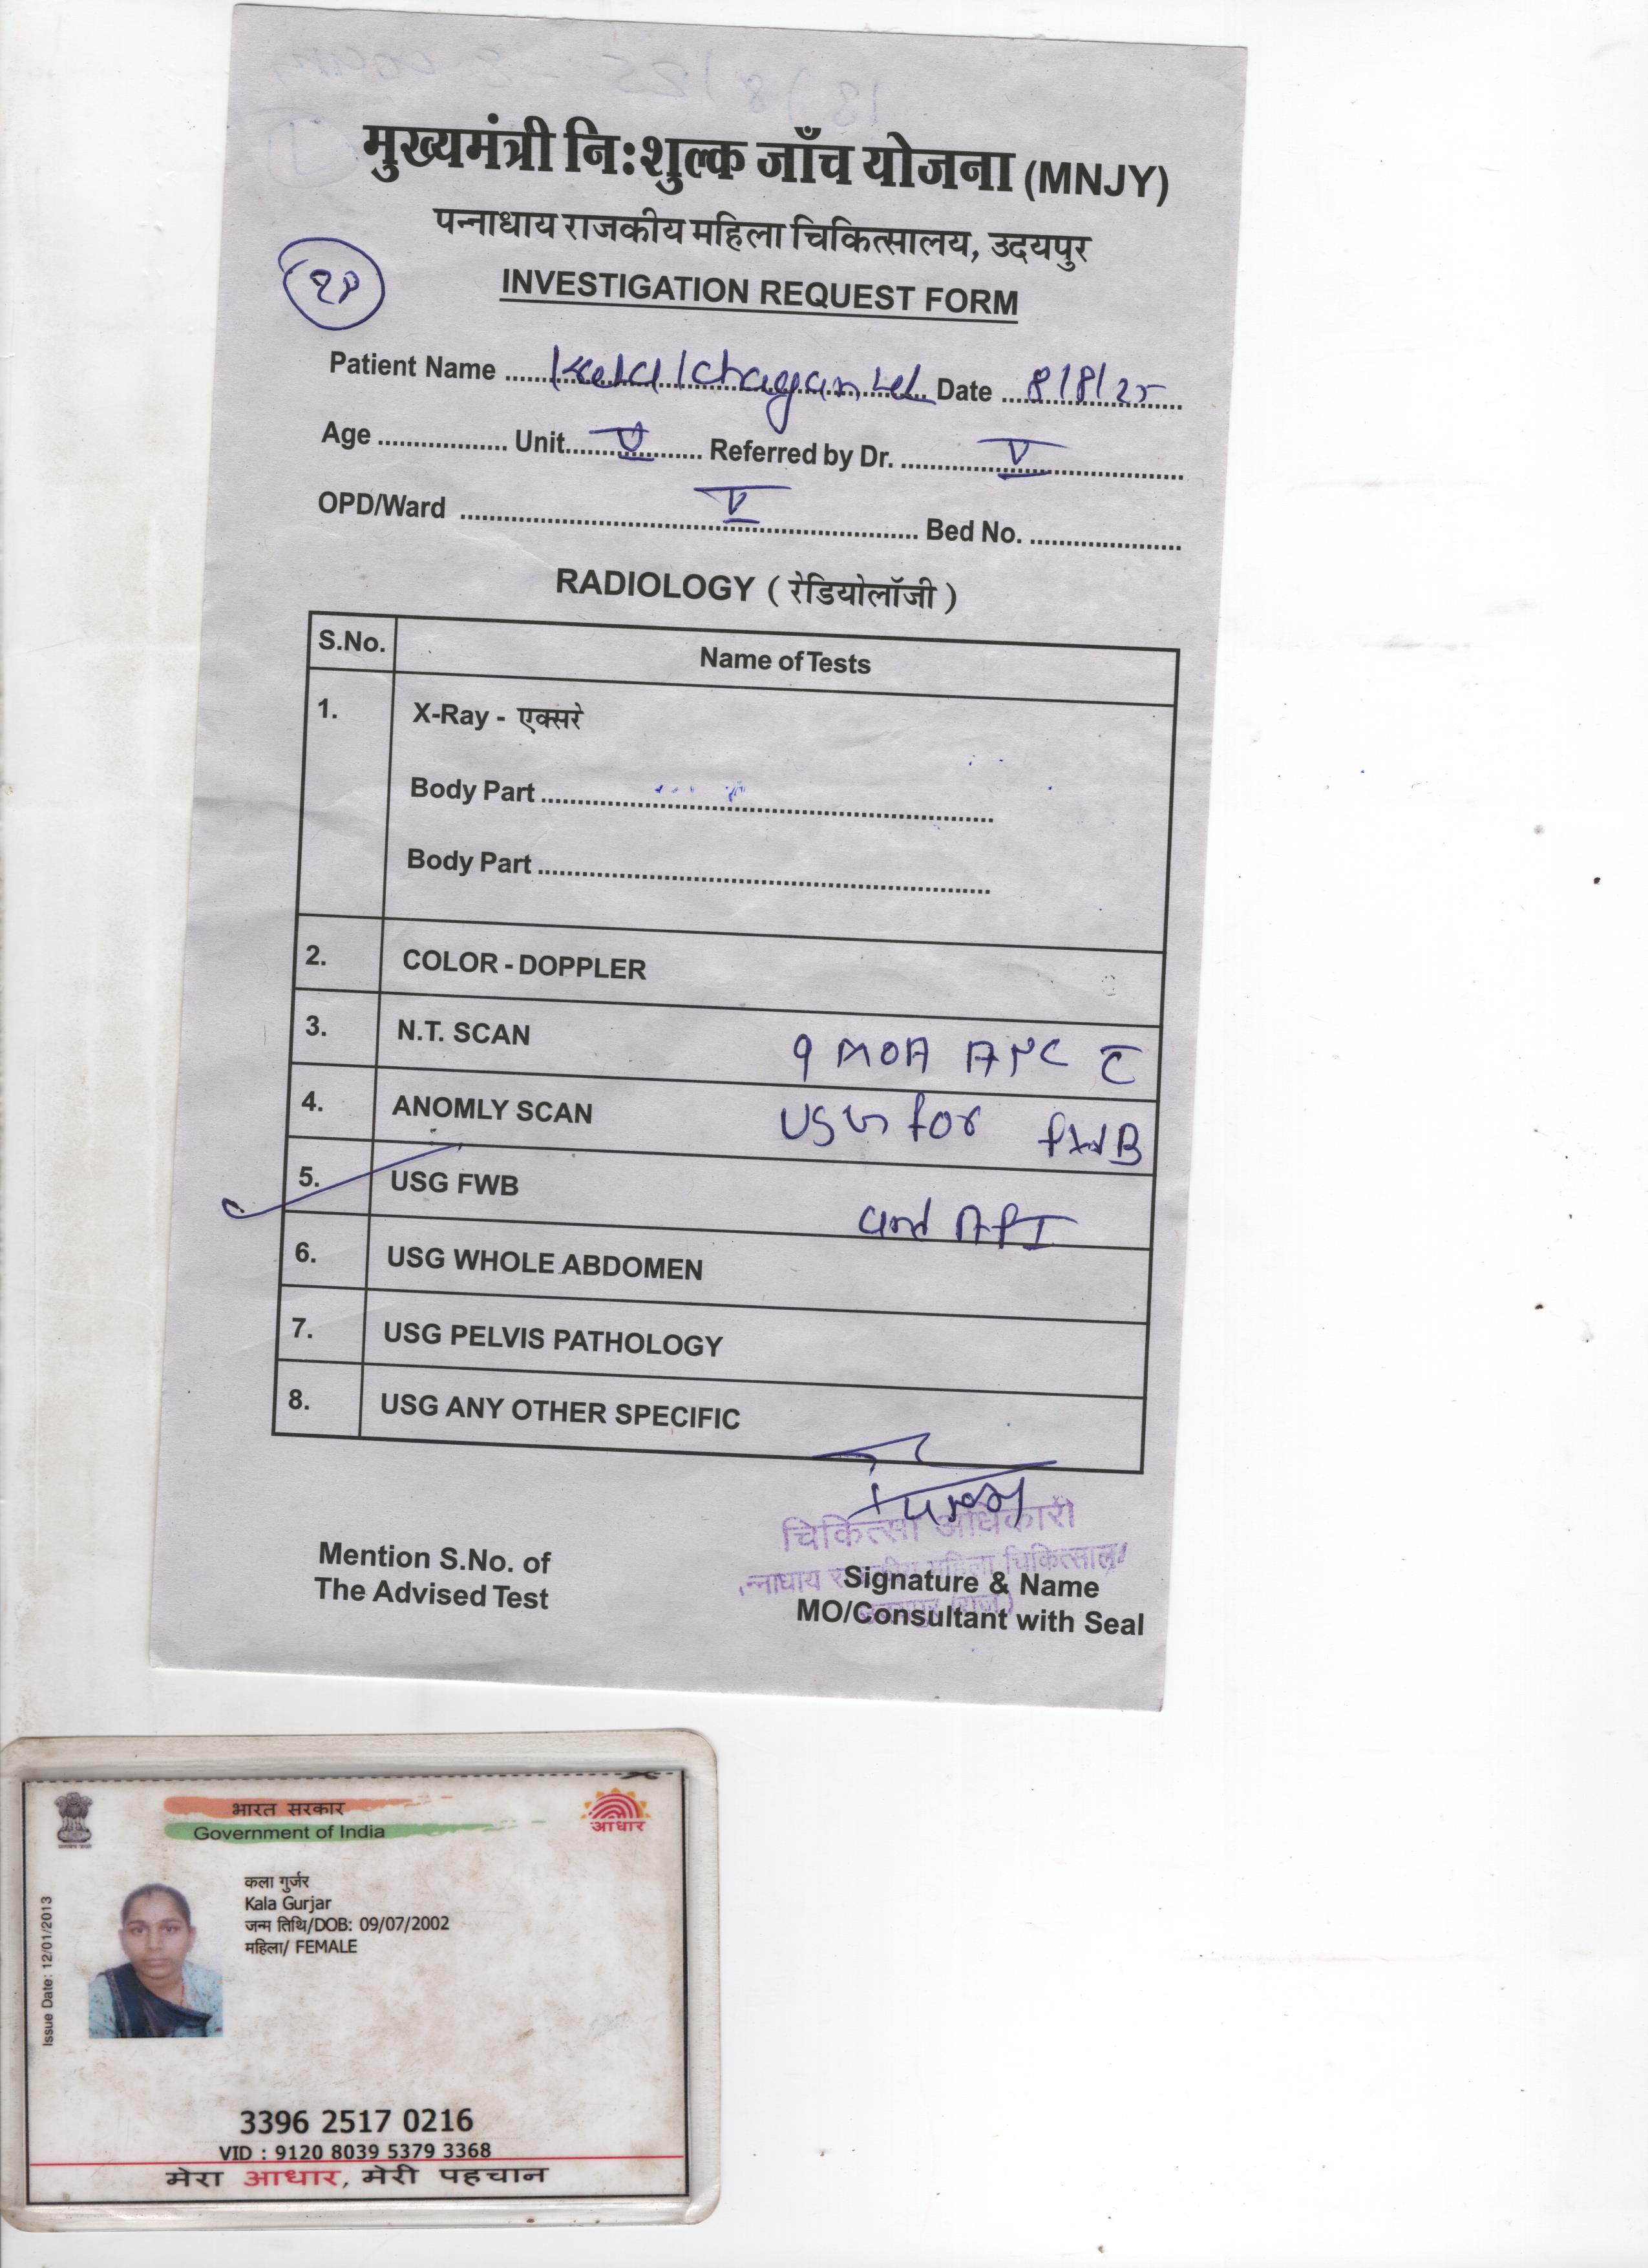 मुख्यमंत्री नि:शुल्क जाँच योजना (MNJY)
पन्नाधाय राजकीय महिला चिकित्सालय, उदयपुर
INVESTIGATION REQUEST FORM
Patient Name Kala / Chagan Lal Date 8/8/25
Age Unit V Referred by Dr. V
OPD/Ward V Bed No.
RADIOLOGY ( रेडियोलॉजी )
S.No. Name of Tests
1. X-Ray - एक्सरे
Body Part
Body Part
2. COLOR - DOPPLER
3. N.T. SCAN 9 MOA ANC c̄
4. ANOMLY SCAN USG for FWB
5. USG FWB and AFI
6. USG WHOLE ABDOMEN
7. USG PELVIS PATHOLOGY
8. USG ANY OTHER SPECIFIC
चिकित्सा अधिकारी
महिला चिकित्साल
Mention S.No. of
The Advised Test
Signature & Name
MO/Consultant with Seal
भारत सरकार
Government of India
आधार
Issue Date: 12/01/2013
कला गुर्जर
Kala Gurjar
जन्म तिथि/DOB: 09/07/2002
महिला/ FEMALE
3396 2517 0216
VID : 9120 8039 5379 3368
मेरा आधार, मेरी पहचान